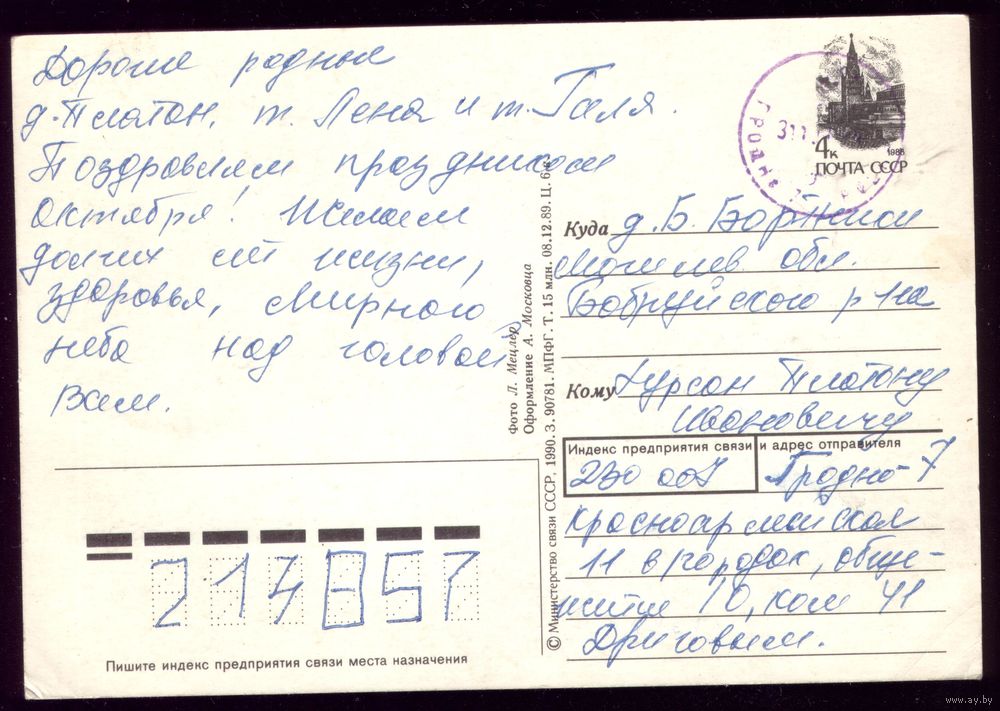 Дорогие родные
д. Платон, т. Лена и т. Галя.
Поздравляем праздником
Октября! Желаем
долгих лет жизни,
здоровья, мирного
неба над головой
Вам.
4к
1988
ПОЧТА СССР
ГРОДНО
Куда д. Б. Бортники
Могилев. обл.
Бобруйского р-на
Кому Платону
Ивановичу
Индекс предприятия связи и адрес отправителя
230 007 Гродно-7
Красноармейская
11 в/городок, обще-
житие 10, ком 41
213857
Пишите индекс предприятия связи места назначения
Фото Л. Мецлер
Оформление А. Московца
© Министерство связи СССР, 1990. З. 90781. МПФГ. Т. 15 млн. 08.12.89. Ц. 6 к.
www.ay.by